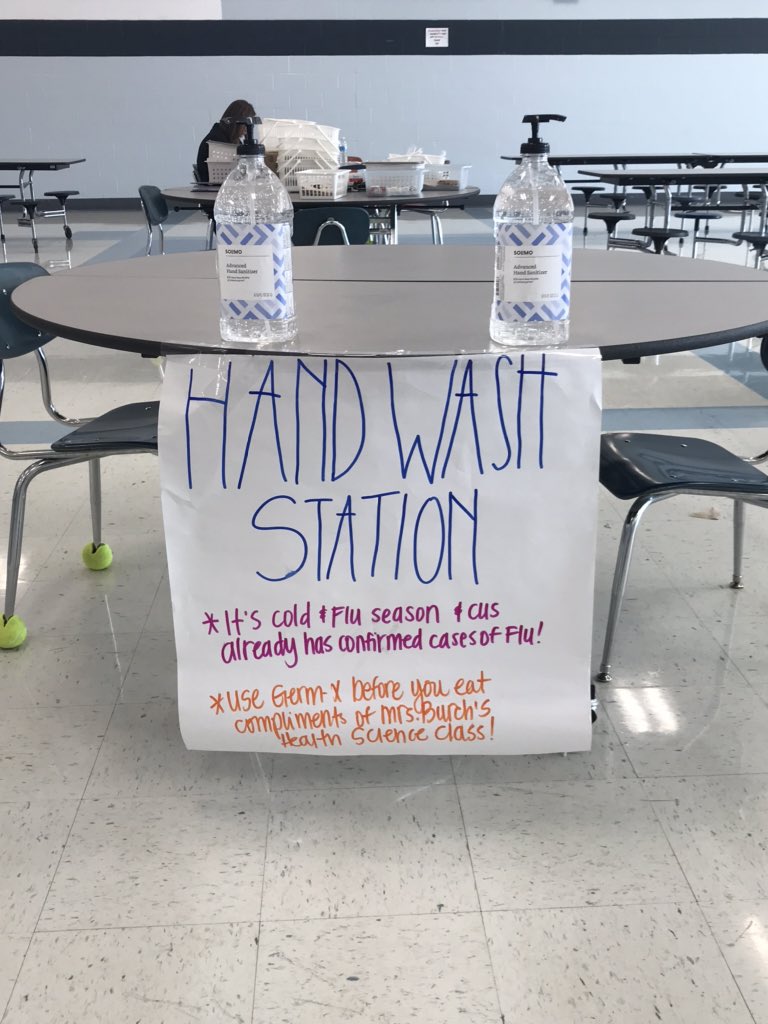 SOLIMO
Advanced
Hand Sanitizer
SOLIMO
Advanced
Hand Sanitizer
HAND WASH
STATION
*It's cold & Flu season & CUS
already has confirmed cases of Flu!
*Use Germ-X before you eat
compliments of Mrs. Burch's
Health Science class!